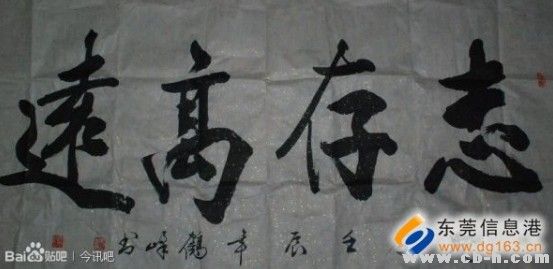 志存高遠
壬辰年鶴峰书
Bai百度贴吧 | 今讯吧
东莞信息港
www.dg163.cn
www.cd-n.com